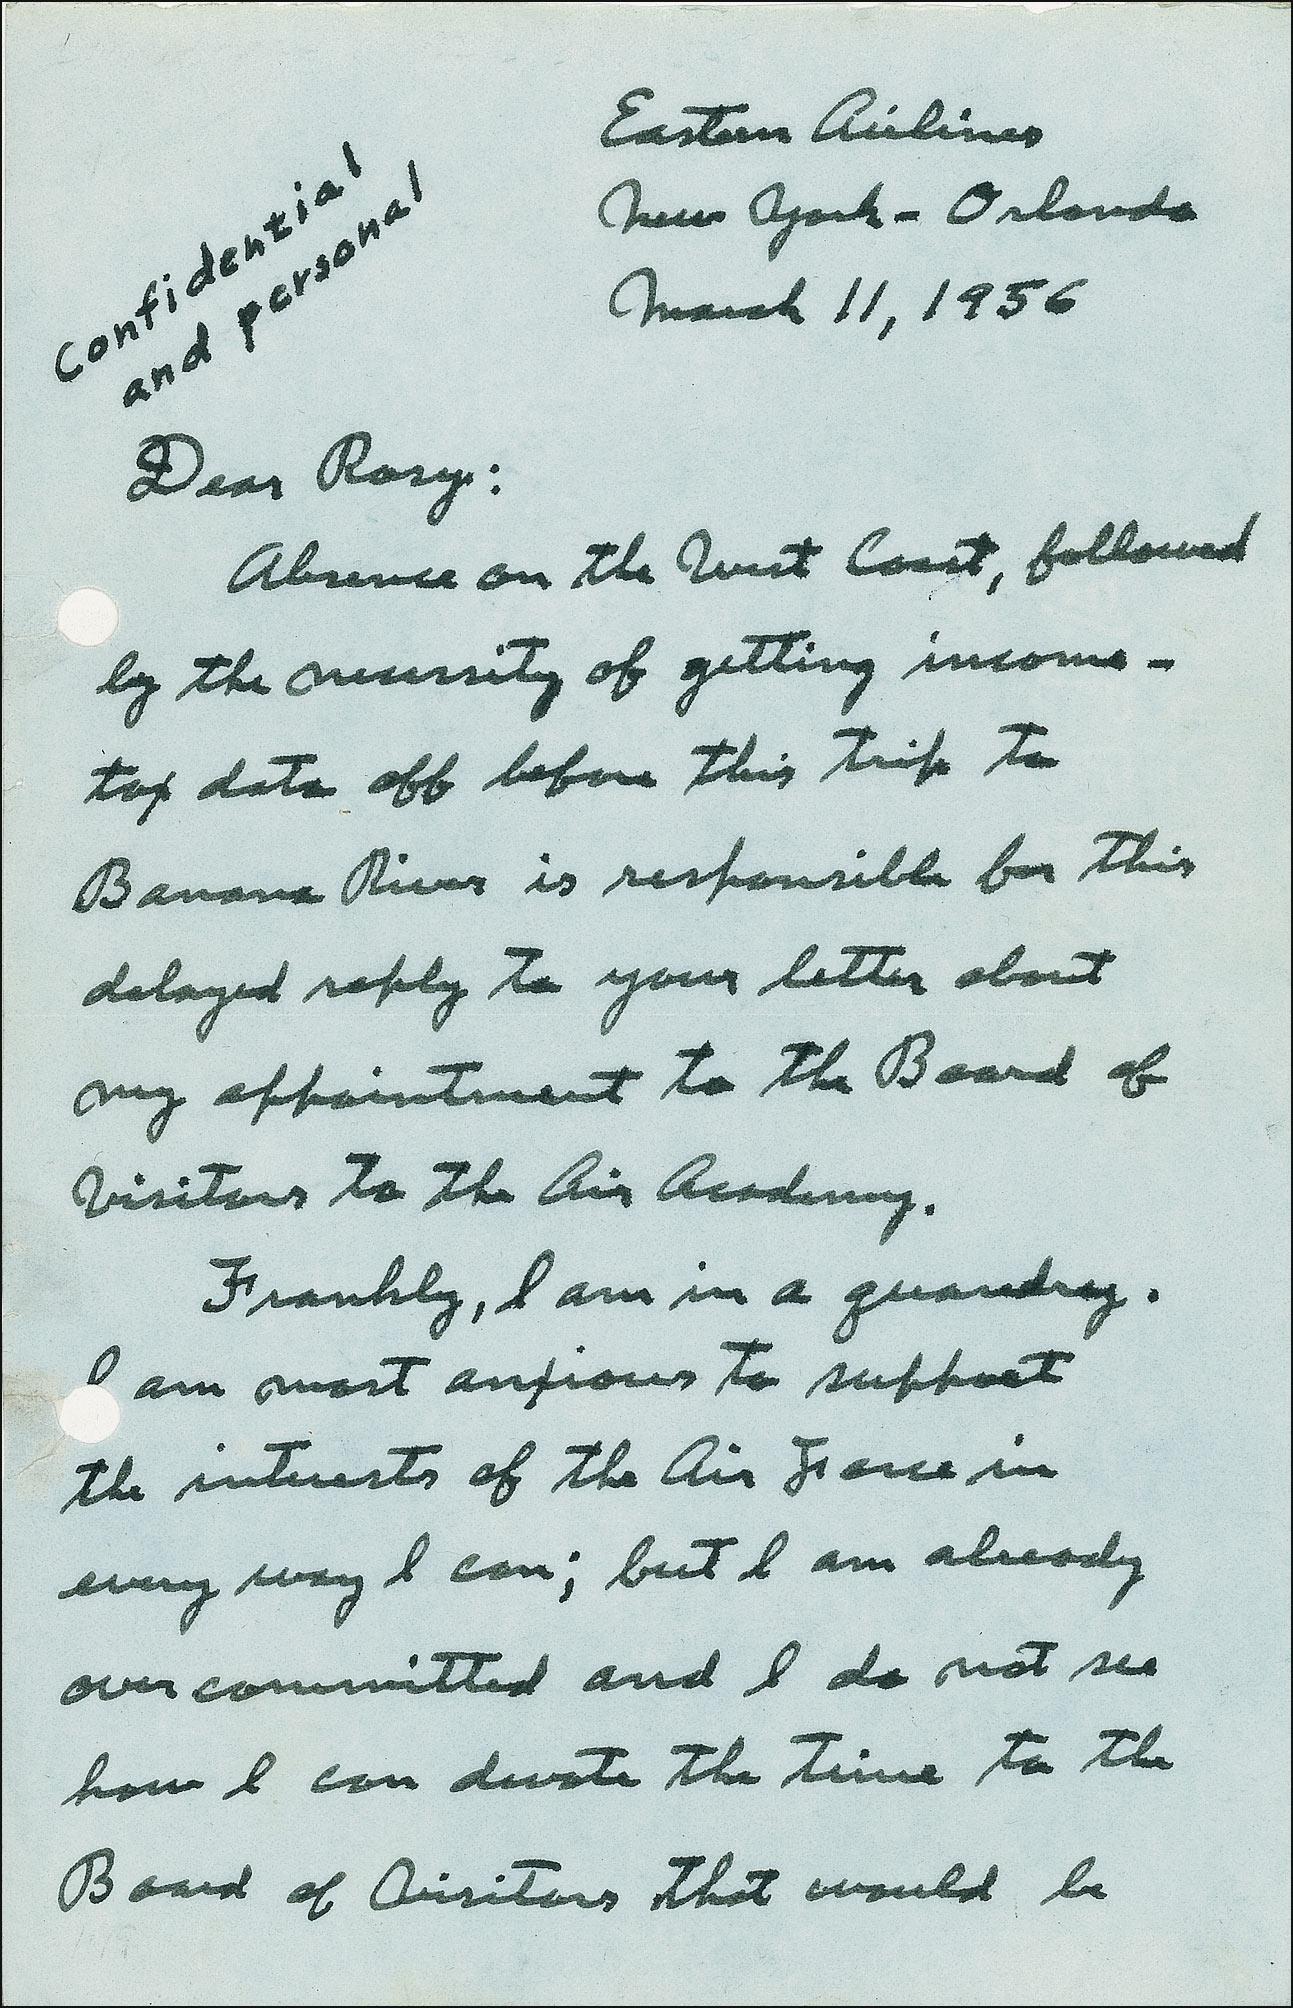 Eastern Airlines
New York - Orlando
March 11, 1956
Confidential
and personal
Dear Rosy:
Absence on the West Coast, followed
by the necessity of getting income-
tax data off before this trip to
Banana River is responsible for this
delayed reply to your letter about
my appointment to the Board of
Visitors to the Air Academy.
Frankly, I am in a quandray.
I am most anxious to support
the interests of the Air Force in
every way I can; but I am already
overcommitted and I do not see
how I can devote the time to the
Board of Visitors that would be